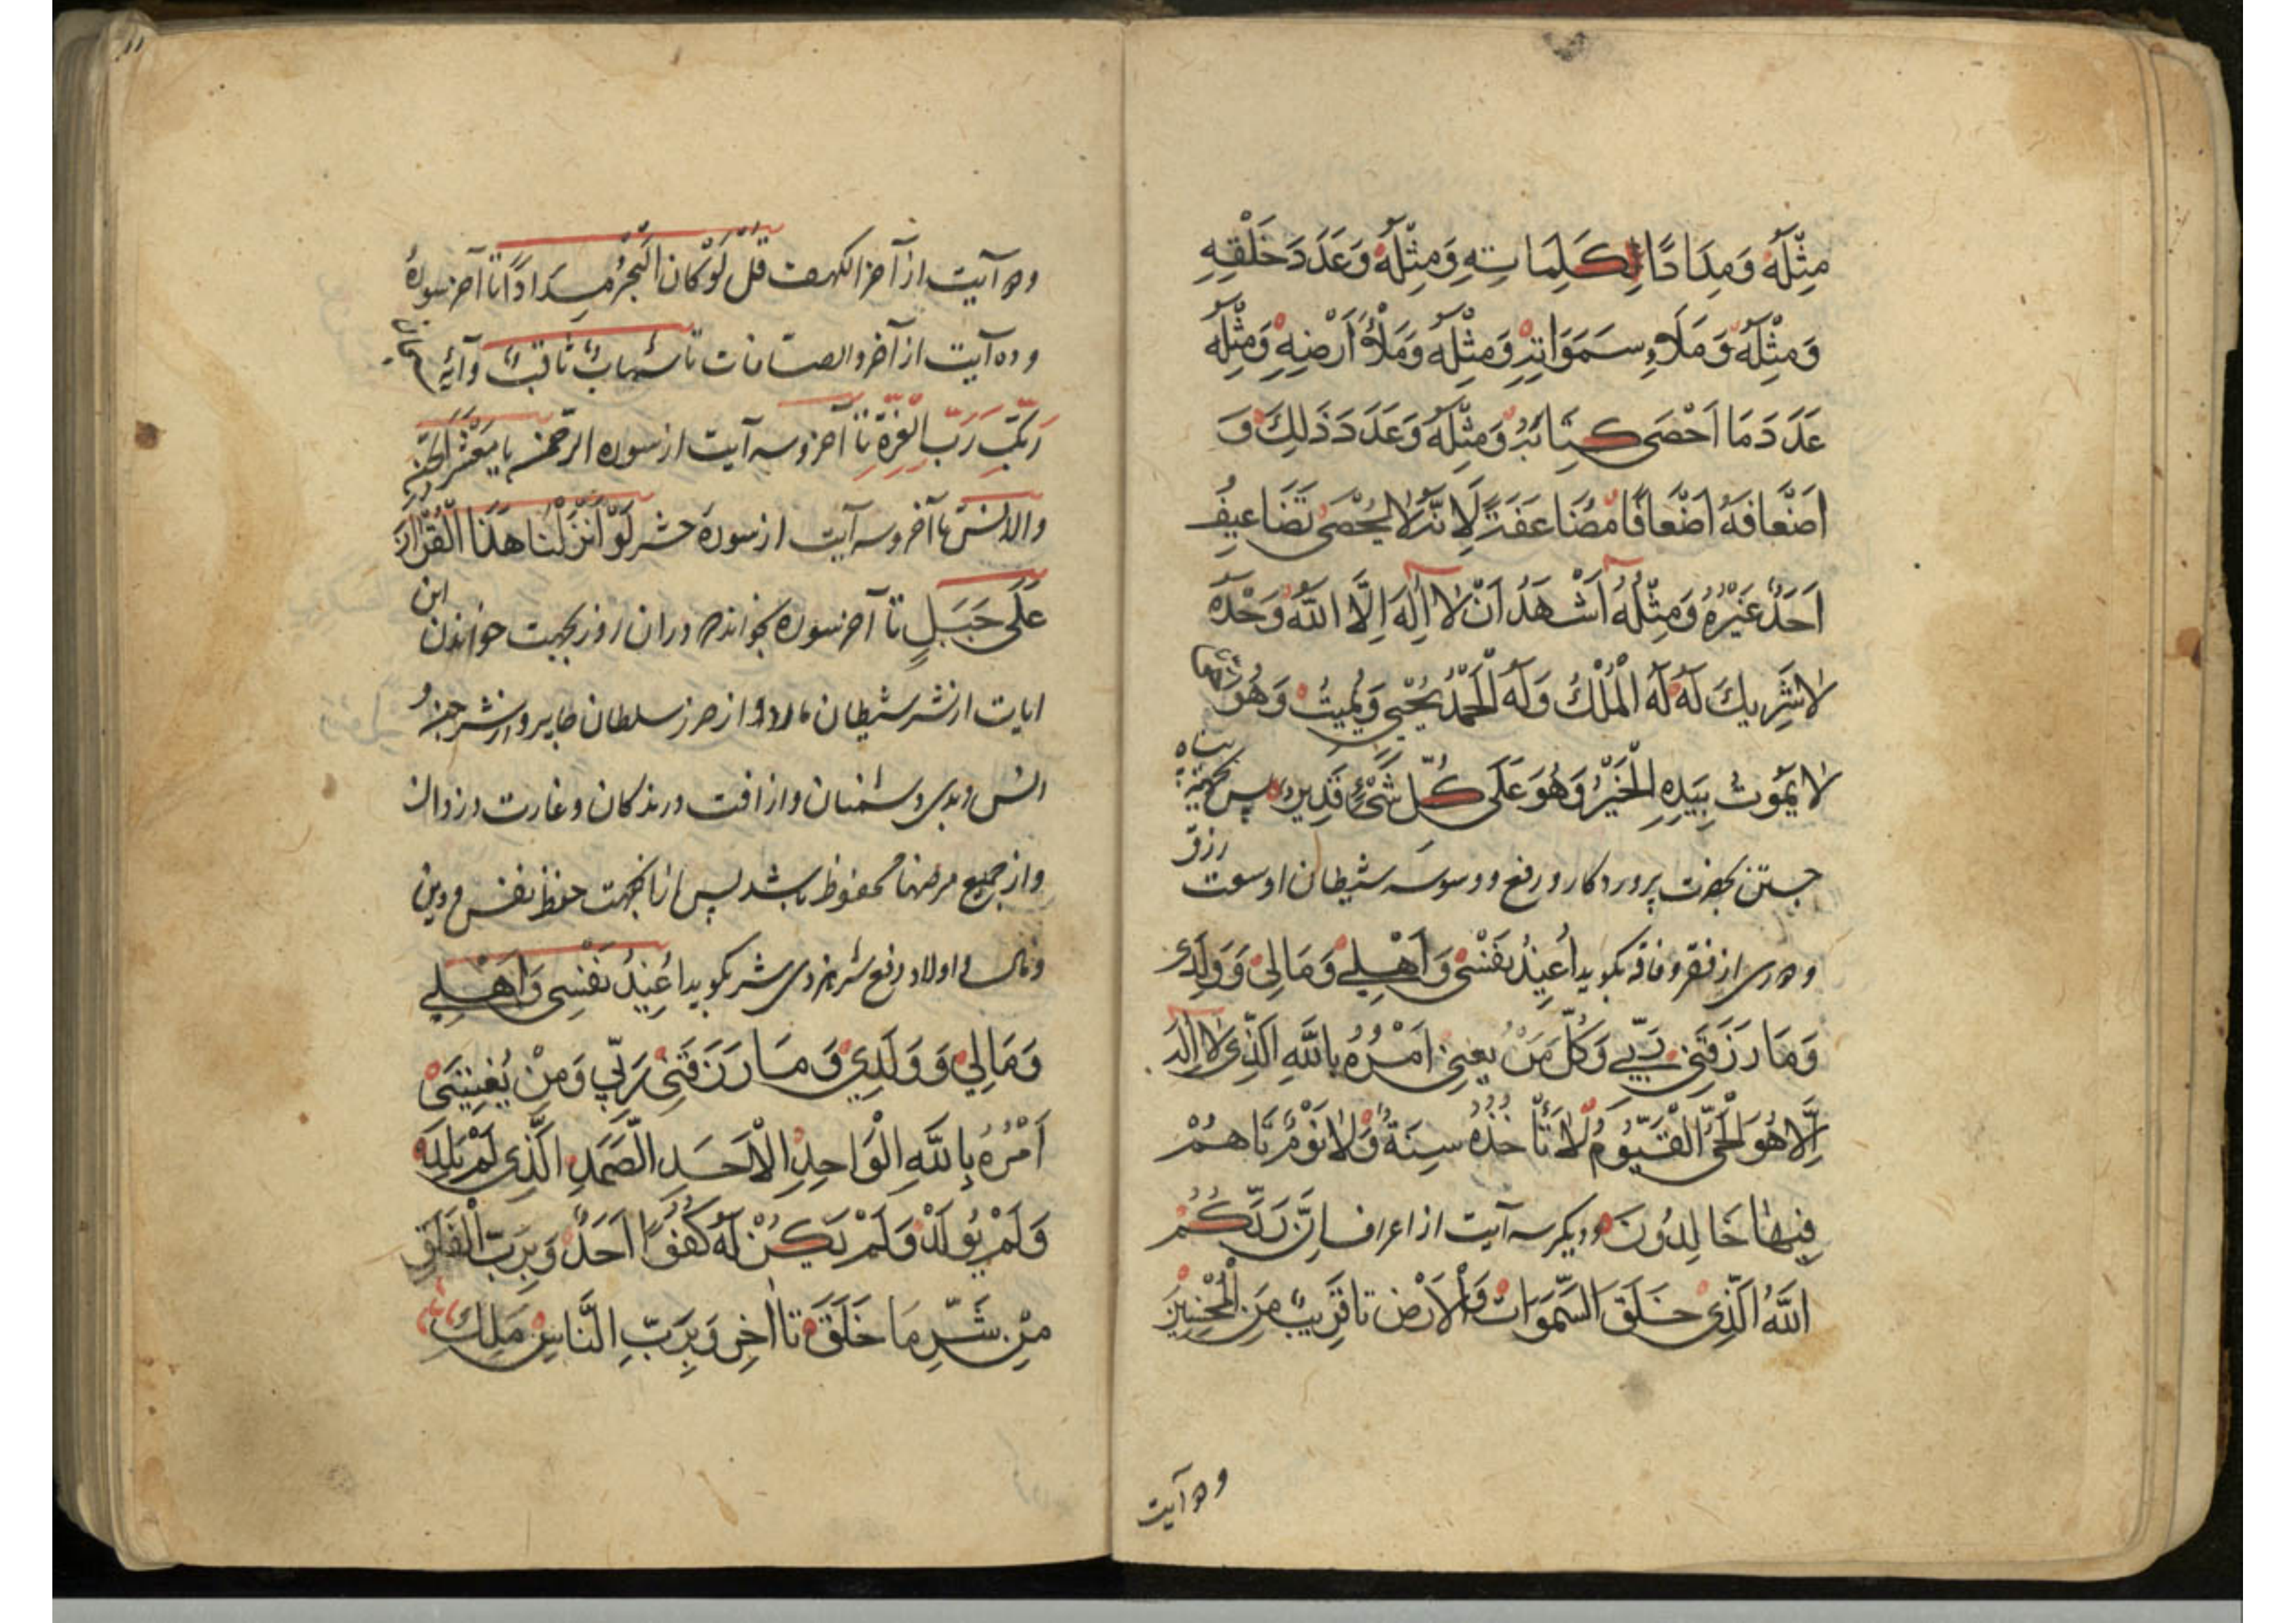 مِثْلَهُ وَمِدَادًا لِكَلِمَاتِهِ وَمِثْلَهُ وَعَدَدَ خَلْقِهِ
وَمِثْلَهُ وَمَلَاءِ سَمَوَاتِهِ وَمِثْلَهُ وَمَلْأَ اَرْضِهِ وَمِثْلَهُ
عَدَدَ مَا اَحْصَى كِتَابُهُ وَمِثْلَهُ وَعَدَدَ ذَلِكَ وَ
اَضْعَافَهُ اَضْعَافًا مُضَاعَفَةً لَا يُحْصَى تَضَاعِيفُ
اَحَدٌ غَيْرُهُ وَمِثْلُهُ اَشْهَدُ اَنْ لَا اِلَهَ اِلَّا اللَّهُ وَحْدَهُ
لَا شَرِيكَ لَهُ لَهُ الْمُلْكُ وَلَهُ الْحَمْدُ يُحْيِي وَيُمِيتُ وَهُوَ
لَا يَمُوتُ بِيَدِهِ الْخَيْرُ وَهُوَ عَلَى كُلِّ شَيْءٍ قَدِيرٌ پس بجهة پناه
جستن بحضرت پروردكار و رفع و وسوسه شيطان و وسعت رزق
و دورى از فقر و فاقه بكويد اُعِيذُ نَفْسِي وَاَهْلِي وَمَالِي وَوَلَدِي
وَمَا رَزَقَنِي رَبِّي وَكُلَّ مَنْ يعنِي اَمْرُهُ بِاللَّهِ الَّذِي لَا اِلَهَ
اِلَّا هُوَ الْحَيُّ الْقَيُّومُ لَا تَأْخُذُهُ سِنَةٌ وَلَا نَوْمٌ تَا هُمْ
فِيهَا خَالِدُونَ و ديكر سه آيت از اعراف اِنَّ رَبَّكُمُ
اللَّهُ الَّذِي خَلَقَ السَّمَوَاتِ وَالْاَرْضَ تا قَرِيبٌ مِنَ الْمُحْسِنِينَ
و دو آيت
و دو آيت از آخر الكهف قُلْ لَوْ كَانَ الْبَحْرُ مِدَادًا تا آخر سوره
و ده آيت از آخر و الصافات تا شهابٌ ثاقبٌ و آيهٔ سبحان
رَبِّكَ رَبِّ الْعِزَّةِ تا آخر و سه آيت از سوره الرحمن يا مَعْشَرَ الْجِنِّ
والانس تا آخر و سه آيت از سورهٔ حشر لَوْ اَنْزَلْنَا هَذَا الْقُرْآنَ
عَلَى جَبَلٍ تا آخر سوره بخواند در ان روز بجهت خواندن اين
ايات از شر شيطان مارد و از ضرر سلطان جاير و از شر جن و
انس و بدى دشمنان و از افت درندكان و غارت دزدان
و از جميع مرضها محفوظ باشد پس بجهت حفظ نفس و دين
و مال و اولاد و رفع شر بكويد اُعِيذُ نَفْسِي وَاَهْلِي
وَمَالِي وَوَلَدِي وَمَا رَزَقَنِي رَبِّي وَمَنْ يَعْنِينِي
اَمْرُهُ بِاللَّهِ الْوَاحِدِ الْاَحَدِ الصَّمَدِ الَّذِي لَمْ يَلِدْ
وَلَمْ يُولَدْ وَلَمْ يَكُنْ لَهُ كُفُوًا اَحَدٌ وَبِرَبِّ الْفَلَقِ
مِنْ شَرِّ مَا خَلَقَ تا اٰخِر وَبِرَبِّ النَّاسِ مَلِكِ